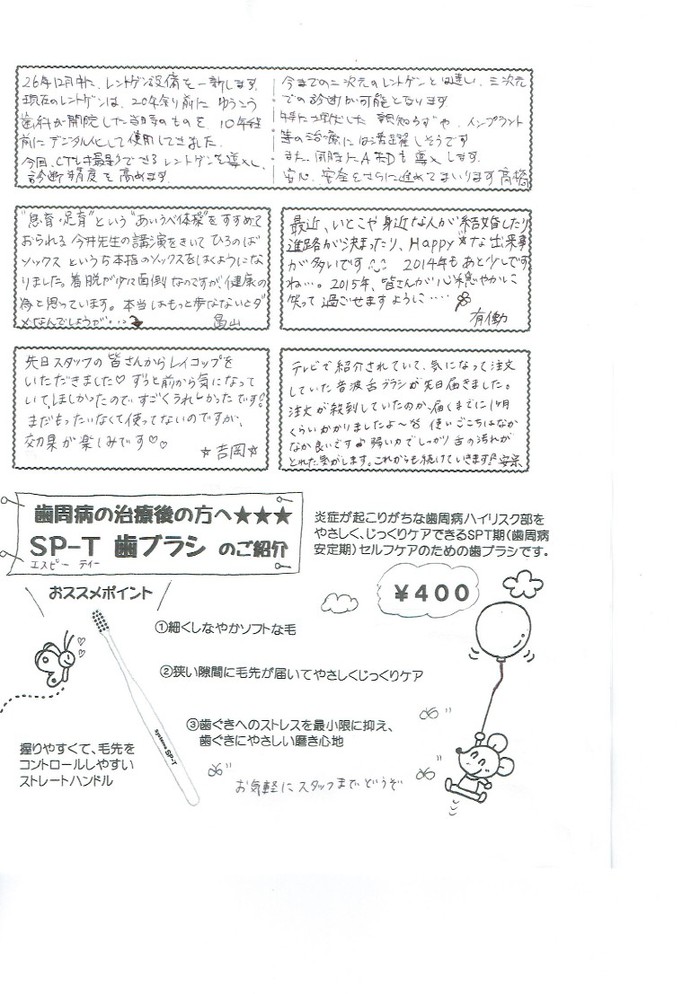 26年12月中に、レントゲン設備を一新します。
現在のレントゲンは、20年余り前に ゆうこう
歯科が開院した当時のものを、10年程
前にデジタル化して使用してきました。
今回、CTも撮影できるレントゲンを導入し、
診断精度を高めます。
今までの二次元のレントゲンとは違い、三次元
での診断が可能となります
特に埋伏した親知らずや、インプラント
等の治療には活躍しそうです
また、同時にAEDも導入します。
安心、安全をさらに進めてまいります 高橋
"息育・足育"という"あいうべ体操"をすすめて
おられる今井先生の講演をきいてひろのば
ソックスという5本指のソックスをはくようにな
りました。着脱が少々面倒なのですが、健康の
為と思っています。本当はもっと歩なないとダ
メなんでしょうが・・・ 畠山
最近、いとこや身近な人が結婚したり
進路が決まったり、Happy☆な出来事
が多いです 2014年もあと少しです
ね…。2015年、皆さんが心穏やかに
笑って過ごせますように・・・・
有働
先日スタッフの皆さんからレイコップを
いただきました♡ ずっと前から気になって
いて、ほしかったので すごくうれしかったです!
まだもったいなくて使ってないのですが、
効果が楽しみです♡♡
☆吉岡☆
テレビで紹介されていて、気になって注文
していた音波舌ブラシが先日届きました。
注文が殺到していたのか、届くまでに1ヶ月
くらいかかりましたよ〜 使いごこちはなか
なか良いです♪ 弱い力でしっかり舌の汚れが
とれた気がします。これからも続けていきます♪ 安楽
歯周病の治療後の方へ★★★
SP-T 歯ブラシ のご紹介
エスピー ティー
炎症が起こりがちな歯周病ハイリスク部を
やさしく、じっくりケアできるSPT期(歯周病
安定期)セルフケアのための歯ブラシです。
おススメポイント
¥400
①細くしなやかソフトな毛
②狭い隙間に毛先が届いてやさしくじっくりケア
③歯ぐきへのストレスを最小限に抑え、
歯ぐきにやさしい磨き心地
systema SP-T
握りやすくて、毛先を
コントロールしやすい
ストレートハンドル
お気軽にスタッフまでどうぞ